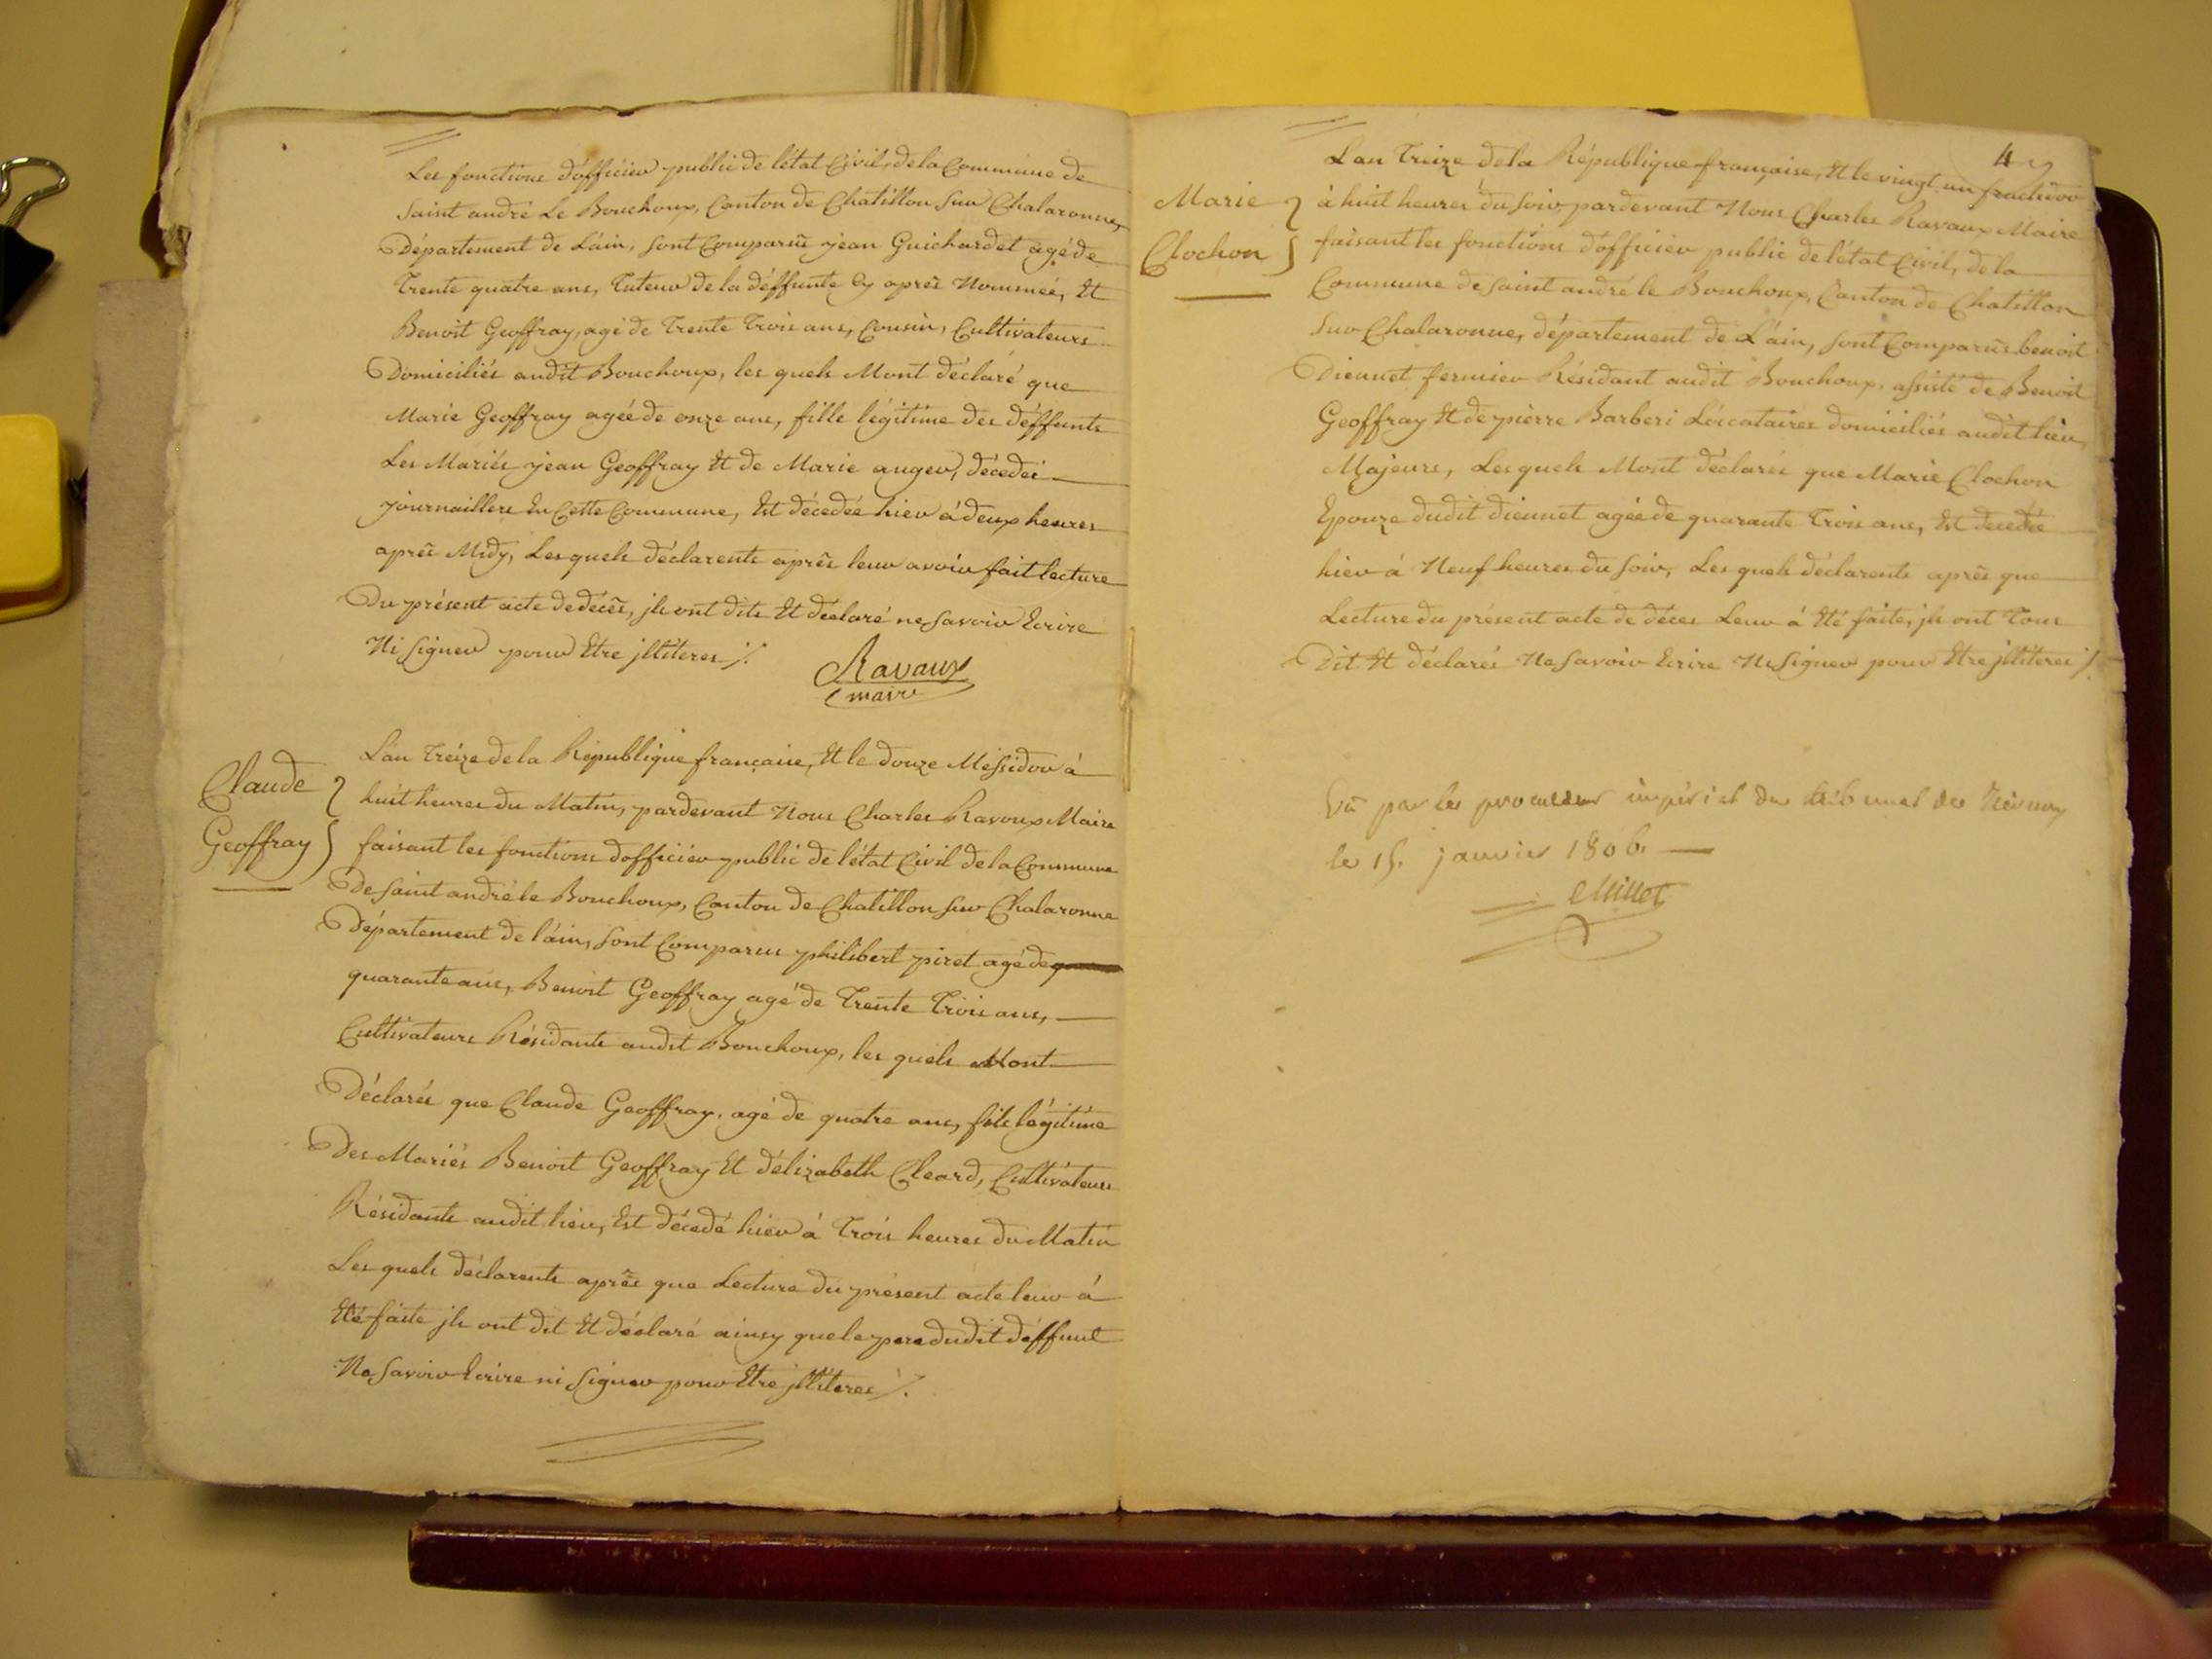 Les fonctions d'officier public de l'état Civil, de la Commune de
saint andré Le Bouchoux, Canton de Chatillon sur Chalaronne,
Département de L'ain, sont Comparus jean Guichardet agé de
Trente quatre ans, Tuteur de la déffunte Cy après Nommée, Et
Benoit Geoffray, agé de Trente Trois ans, Cousin, Cultivateurs
Domiciliés audit Bouchoux, les quels Mont déclaré que
Marie Geoffray agée de onze ans, fille légitime des déffunts
Les Mariés jean Geoffray Et de Marie auger, décedés
journailliers En Cette Commune, Est décedée hier à deux heures
après Midy, Les quels déclarents après leur avoir fait lecture
Du présent acte de décès, jls ont dits Et déclaré ne savoir Ecrire
Ni signer pour Etre jlliteres ⁒
Ravaux
maire
Claude
Geoffray
L'an Treize de la République française, Et le douze Messidor à
huit heures du Matin, pardevant Nous Charles Ravoux Maire
faisant les fonctions d'officier public de l'état Civil de la Commune
De saint andré le Bouchoux, Canton de Chatillon sur Chalaronne
Département de l'ain, sont Comparus philibert piret agé de
quarante ans, Benoit Geoffray agé de Trente Trois ans,
Cultivateurs Résidants audit Bouchoux, les quels Mont
Déclarés que Claude Geoffray, agé de quatre ans, fils légitime
Des Mariés Benoit Geoffray Et d'élizabeth Cleard, Cultivateurs
Résidants audit lieu, Est décedé hier à Trois heures du Matin
Les quels déclarents après que Lecture du présent acte leur à
Eté faite jls ont dit Et déclaré ainsy que le pere dudit déffunt
Ne savoir Ecrire ni signer pour Etre jlliteres ⁒
4
Marie
Clochon
L'an Treize de la République française, Et le vingt un fructidor
à huit heures du soir, pardevant Nous Charles Ravaux Maire
faisant les fonctions d'officier public de l'état Civil, de la
Commune de saint andré le Bouchoux, Canton de Chatillon
sur Chalaronne, département de L'ain, sont Comparus benoit
Diennet fermier Résidant audit Bouchoux, assisté de Benoit
Geoffray Et de pierre Barberi Locataires domiciliés audit lieu,
Majeurs, Les quels Mont déclarés que Marie Clochon
Epouze dudit diennet agée de quarante Trois ans, Est décedée
hier à Neuf heures du soir, Les quels déclarents après que
Lecture du présent acte de déces Leur à Eté faite, jls ont Tous
Dit Et déclarés Ne savoir Ecrire Ni signer pour Etre jlliteres ⁒
Vu par le procureur impérial du tribunal de Trévoux
le 15 janvier 1806.
Millet